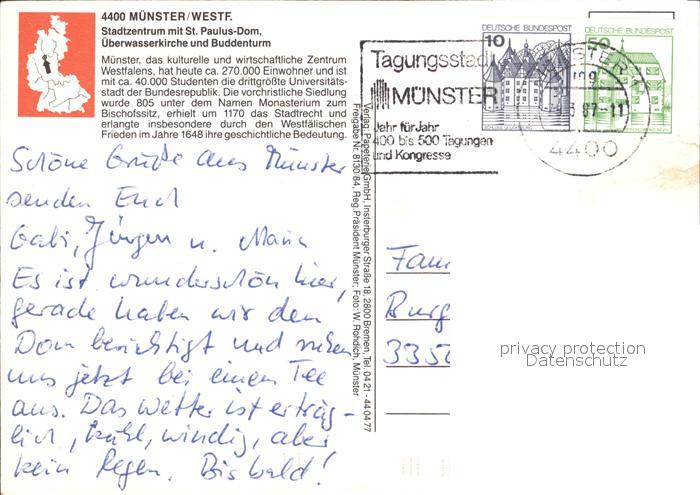 4400 MÜNSTER/WESTF.
Stadtzentrum mit St. Paulus-Dom,
Überwasserkirche und Buddenturm
Münster, das kulturelle und wirtschaftliche Zentrum
Westfalens, hat heute ca. 270.000 Einwohner und ist
mit ca. 40.000 Studenten die drittgrößte Universitäts-
stadt der Bundesrepublik. Die vorchristliche Siedlung
wurde 805 unter dem Namen Monasterium zum
Bischofssitz, erhielt um 1170 das Stadtrecht und
erlangte insbesondere durch den Westfälischen
Frieden im Jahre 1648 ihre geschichtliche Bedeutung.
Schöne Grüße aus Münster
senden Euch
Gabi, Jürgen u. Maria
Es ist wunderschön hier,
gerade haben wir den
Dom besichtigt und ruhen
uns jetzt bei einem Tee
aus. Das Wetter ist erträg-
lich, kühl, windig, aber
kein Regen. Bis bald!
Verlag: Papeterie GmbH, Insterburger Straße 18, 2800 Bremen, Tel. 0421-440477
Freigabe Nr. 8130/84, Reg. Präsident Münster; Foto: W. Rohdich, Münster
Tagungsstadt
MÜNSTER
Jahr für Jahr
400 bis 500 Tagungen
und Kongresse
10
DEUTSCHE BUNDESPOST
50
DEUTSCHE BUNDESPOST
MÜNSTER
87-11
4400
Fam
Burg
335
privacy protection
Datenschutz